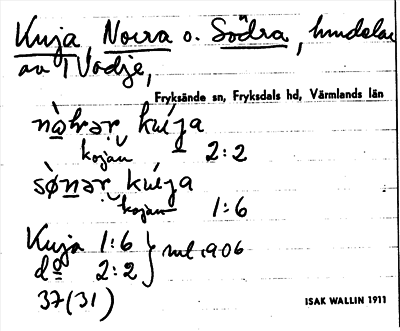 Kuja, Norra o. Södra, hmdelar
av 1 Vadje,
Fryksände sn, Fryksdals hd, Värmlands län
kúi̯a
kojan 2:2
kúi̯a
kojan 1:6
Kuja 1:6
do 2:2 } 1906
37(31)
ISAK WALLIN 1911